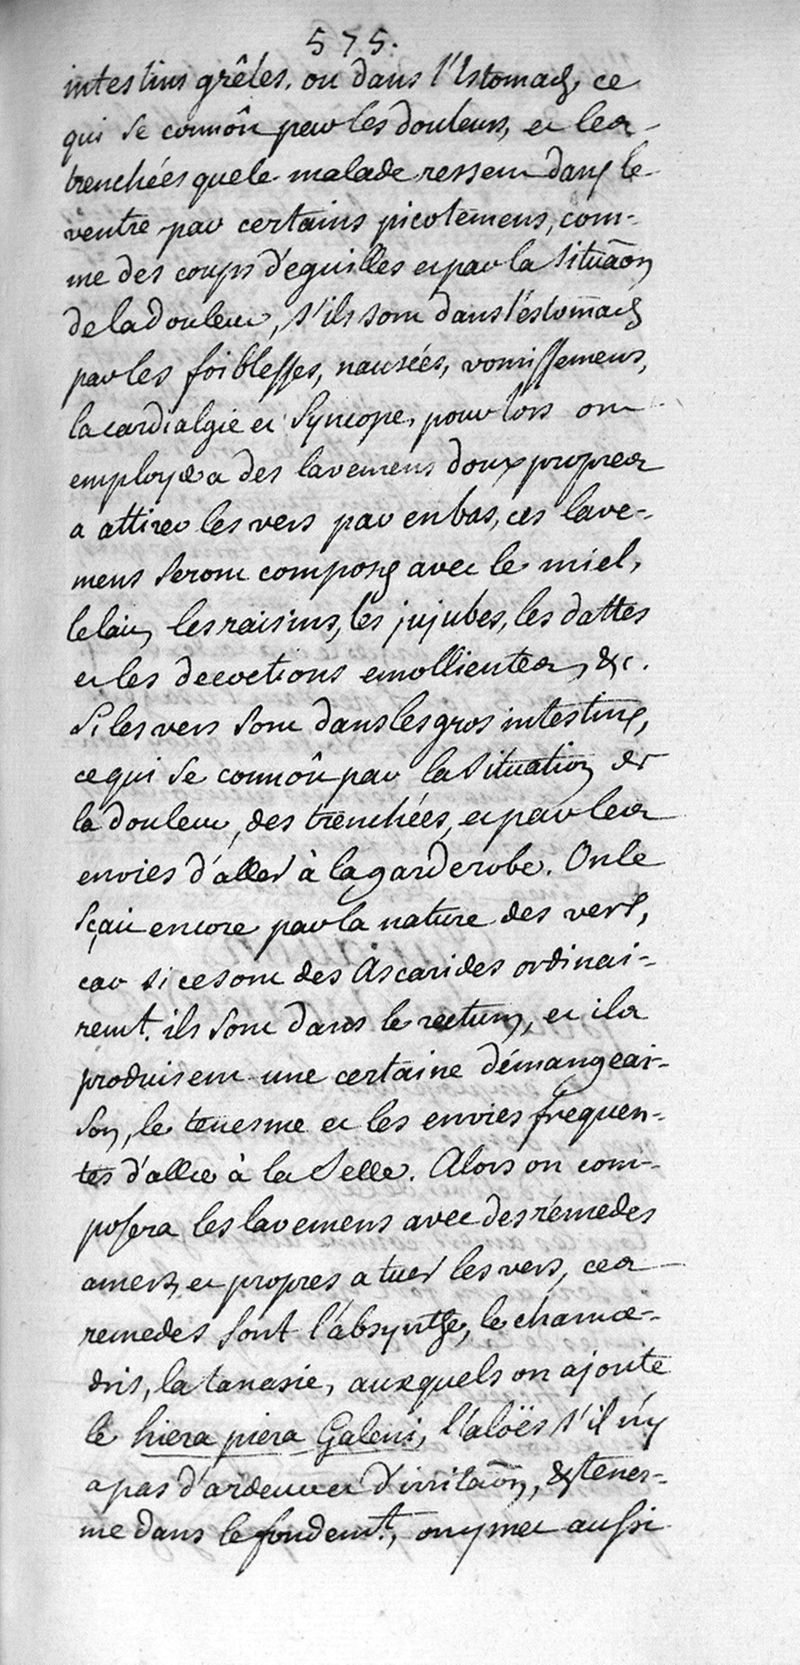 575.
intestins grêles. ou dans l'Estomach, ce
qui se connôit par les douleurs, et les
trenchées que le malade ressent dans le
ventre par certains picotemens, com-
me des coups d'eguilles et par la Situãon
de la douleur, s'ils sont dans l'éstomach
par les foiblesses, nausées, vomissemens,
la cardialgie et Syncope, pour lors on
employera des lavemens doux propres
a attirer les vers par enbas, ces lave-
mens Seront composés avec le miel,
le lait, les raisins, les jujubes, les dattes
et les decoctions emollientes, &c.
Si les vers Sont dans les gros intestins,
ce qui se connôit par la Situation de
la douleur, des trenchées, et par les
envies d'aller à la garderobe. On le
Sçait encore par la nature des vers,
car si ce sont des Ascarides ordinai-
remt. ils Sont dans le rectum, et ils
produisent une certaine démangeai-
son, le tenesme et les envies frequen-
tes d'aller à la Selle. Alors on com-
posera les lavemens avec des rémedes
amers, et propres a tuer les vers, ces
remedes sont l'absynthe, le chamæ-
dris, la tanasie, auxquels on ajoute
le hiera picra Galeni, l'aloës s'il n'y
a pas d'ardeur et d'irritãon, & tenes-
me dans le fondemt., on y met aussi